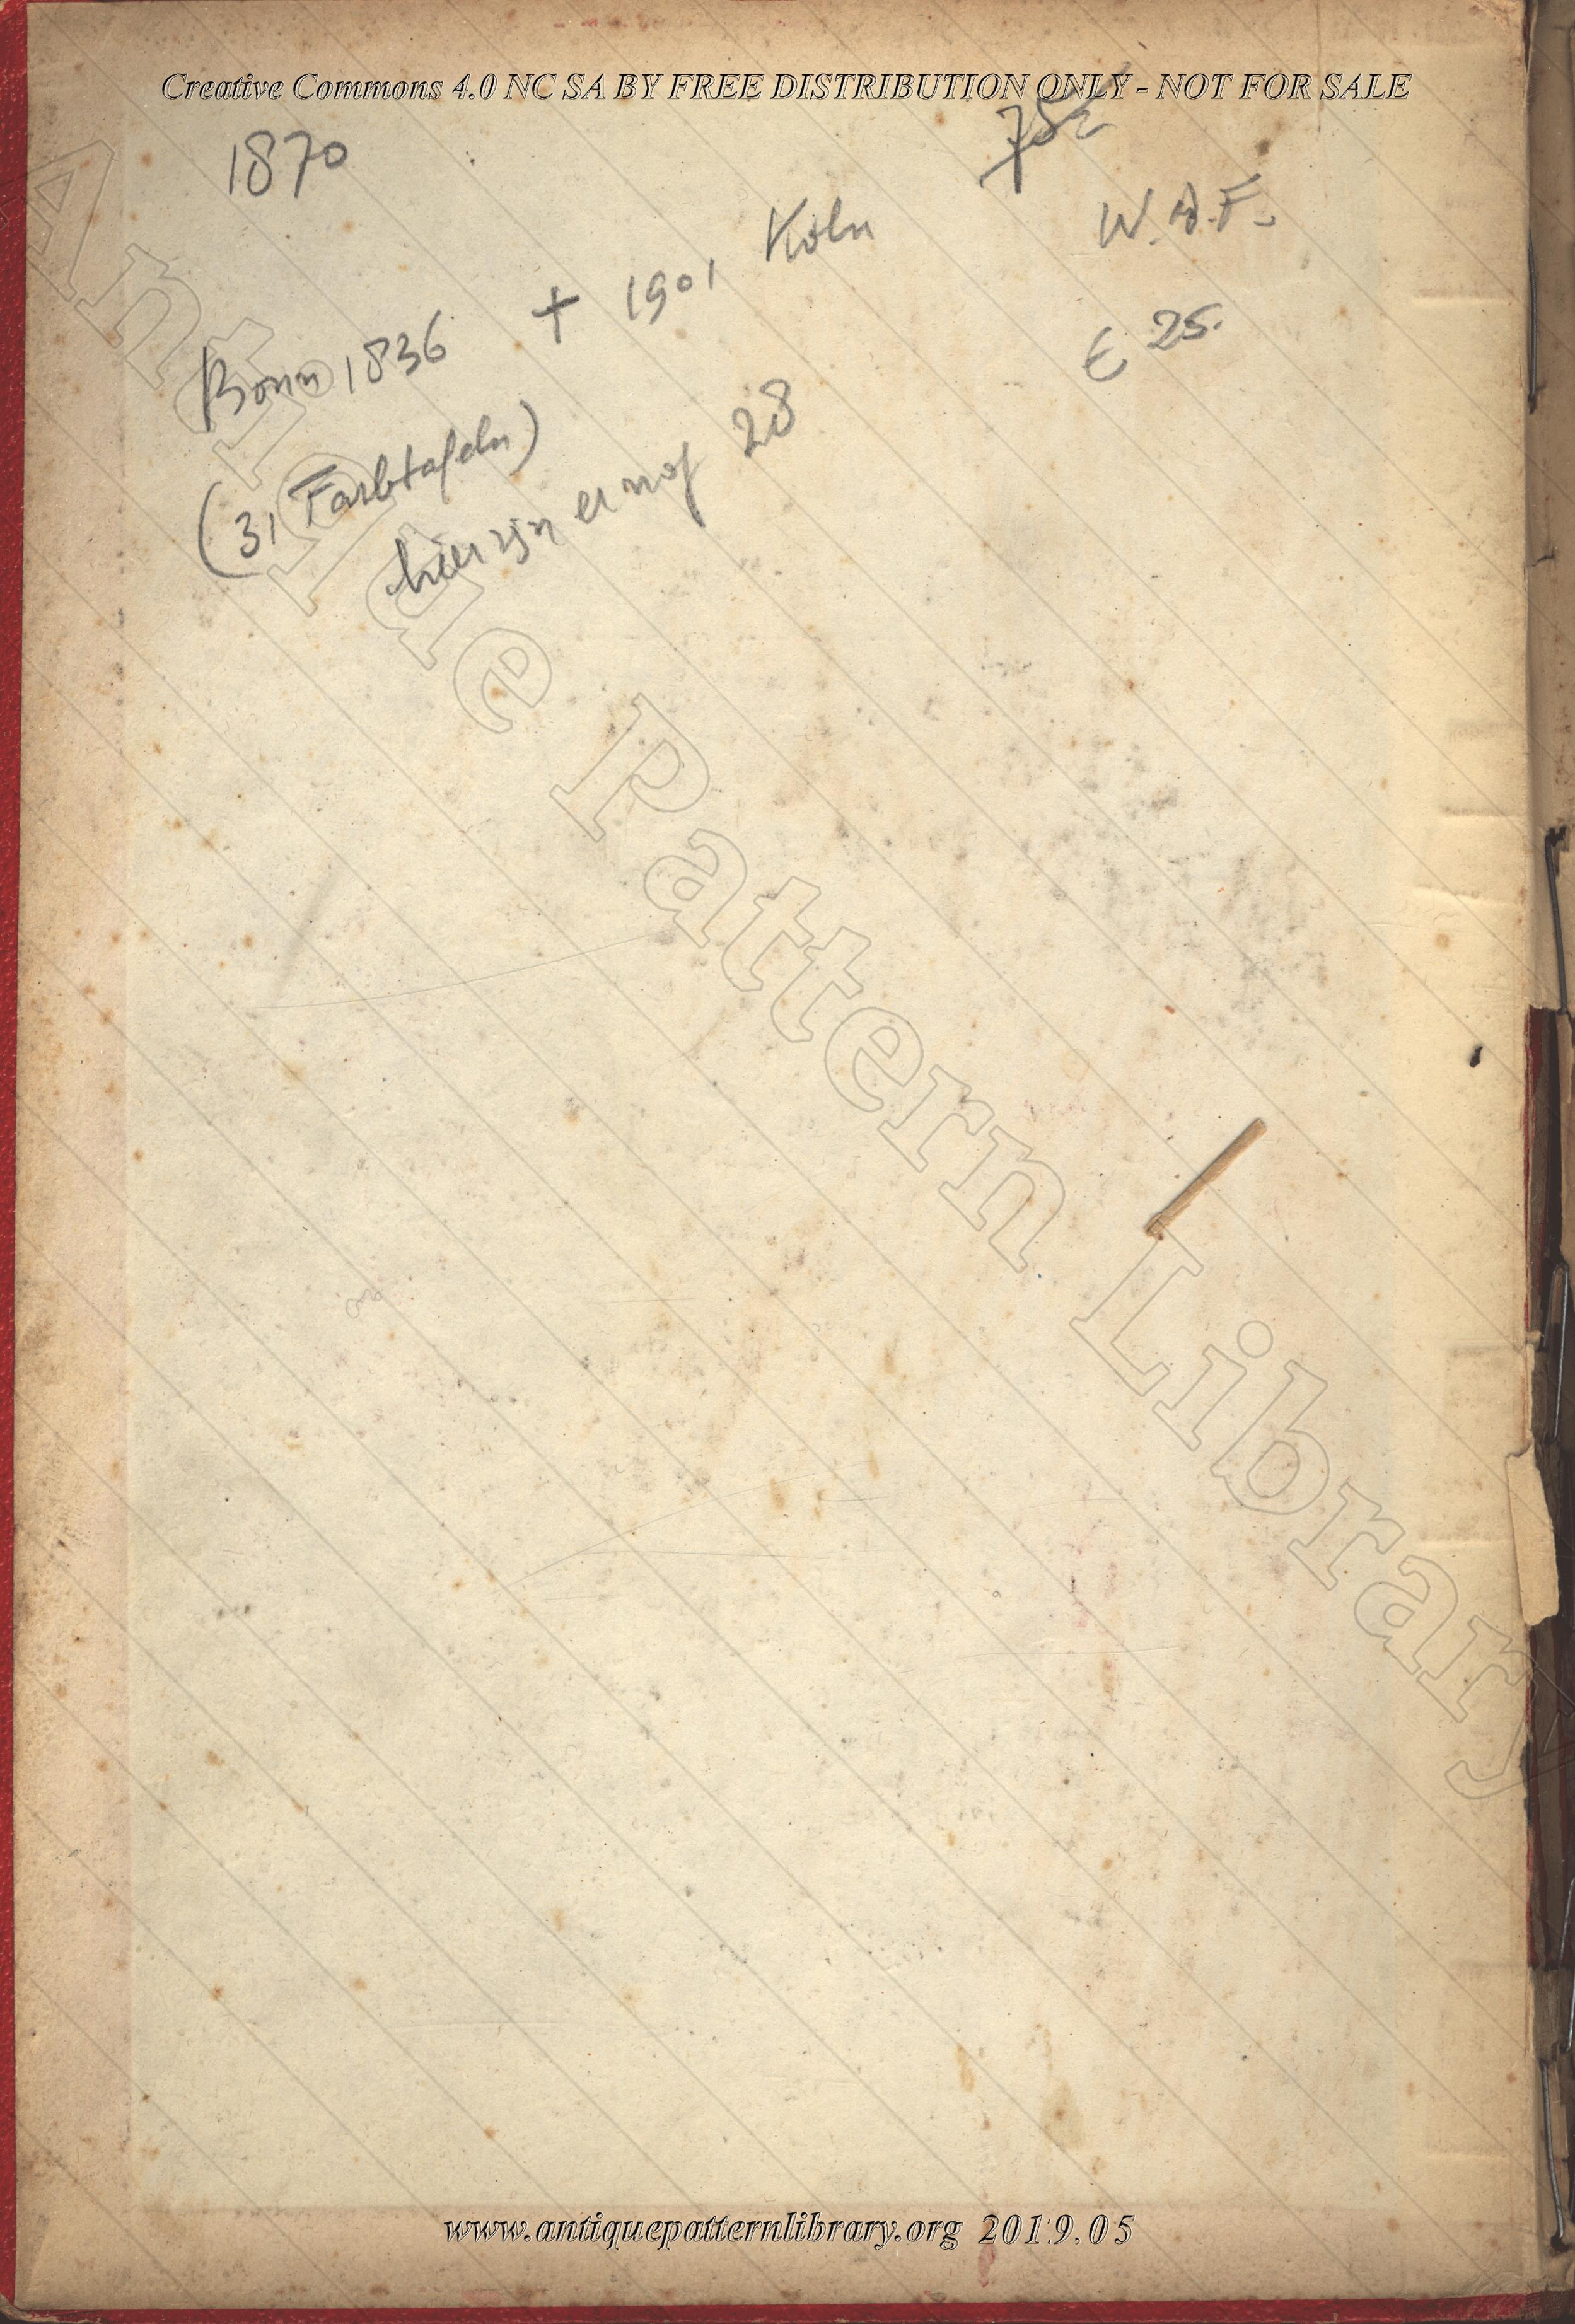 Creative Commons 4.0 NC SA BY FREE DISTRIBUTION ONLY - NOT FOR SALE
1870
W.A.F.
Bonn 1836 + 1901 Köln
E 25.
(31 Farbtafeln)
hier zijn er nog 28
Antique Pattern Library
www.antiquepatternlibrary.org 2019.05